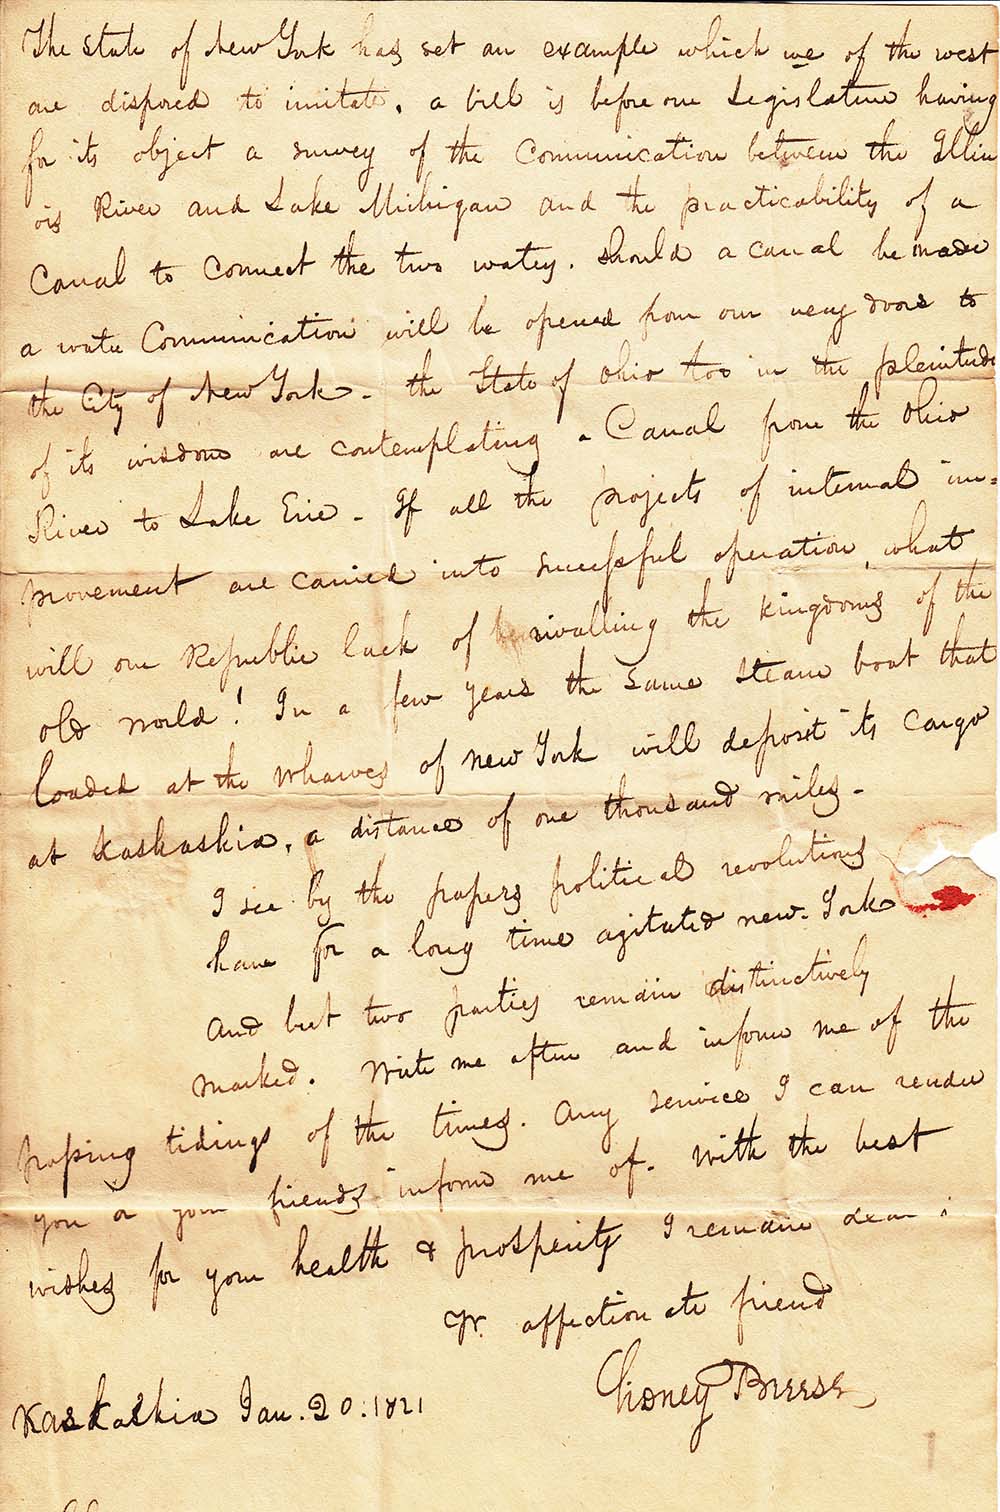 The state of New York has set an example which we of the west
are disposed to imitate. a bill is before our Legislature having
for its object a survey of the Communication between the Illin
ois River and Lake Michigan and the practicability of a
Canal to connect the two waters. Should a canal be made
a water Communication will be opened from our very doors to
the City of New York. the State of Ohio too in the plenitude
of its wisdom are contemplating a Canal from the Ohio
River to Lake Erie - If all the projects of internal im=
provement are carried into successful operation, what
will our Republic lack of rivalling the kingdoms of the
old world! In a few years the same steam boat that
loaded at the wharves of New York will deposit its cargo
at Kaskaskia, a distance of one thousand miles -
I see by the papers political revolutions
have for a long time agitated new-York
and but two parties remain distinctively
marked. Write me often and inform me of the
passing tidings of the times. Any service I can render
you or your friends inform me of. With the best
wishes for your health & prosperity I remain dear
Yr. affectionate friend
Sidney Breese
Kaskaskia Jan. 20. 1821